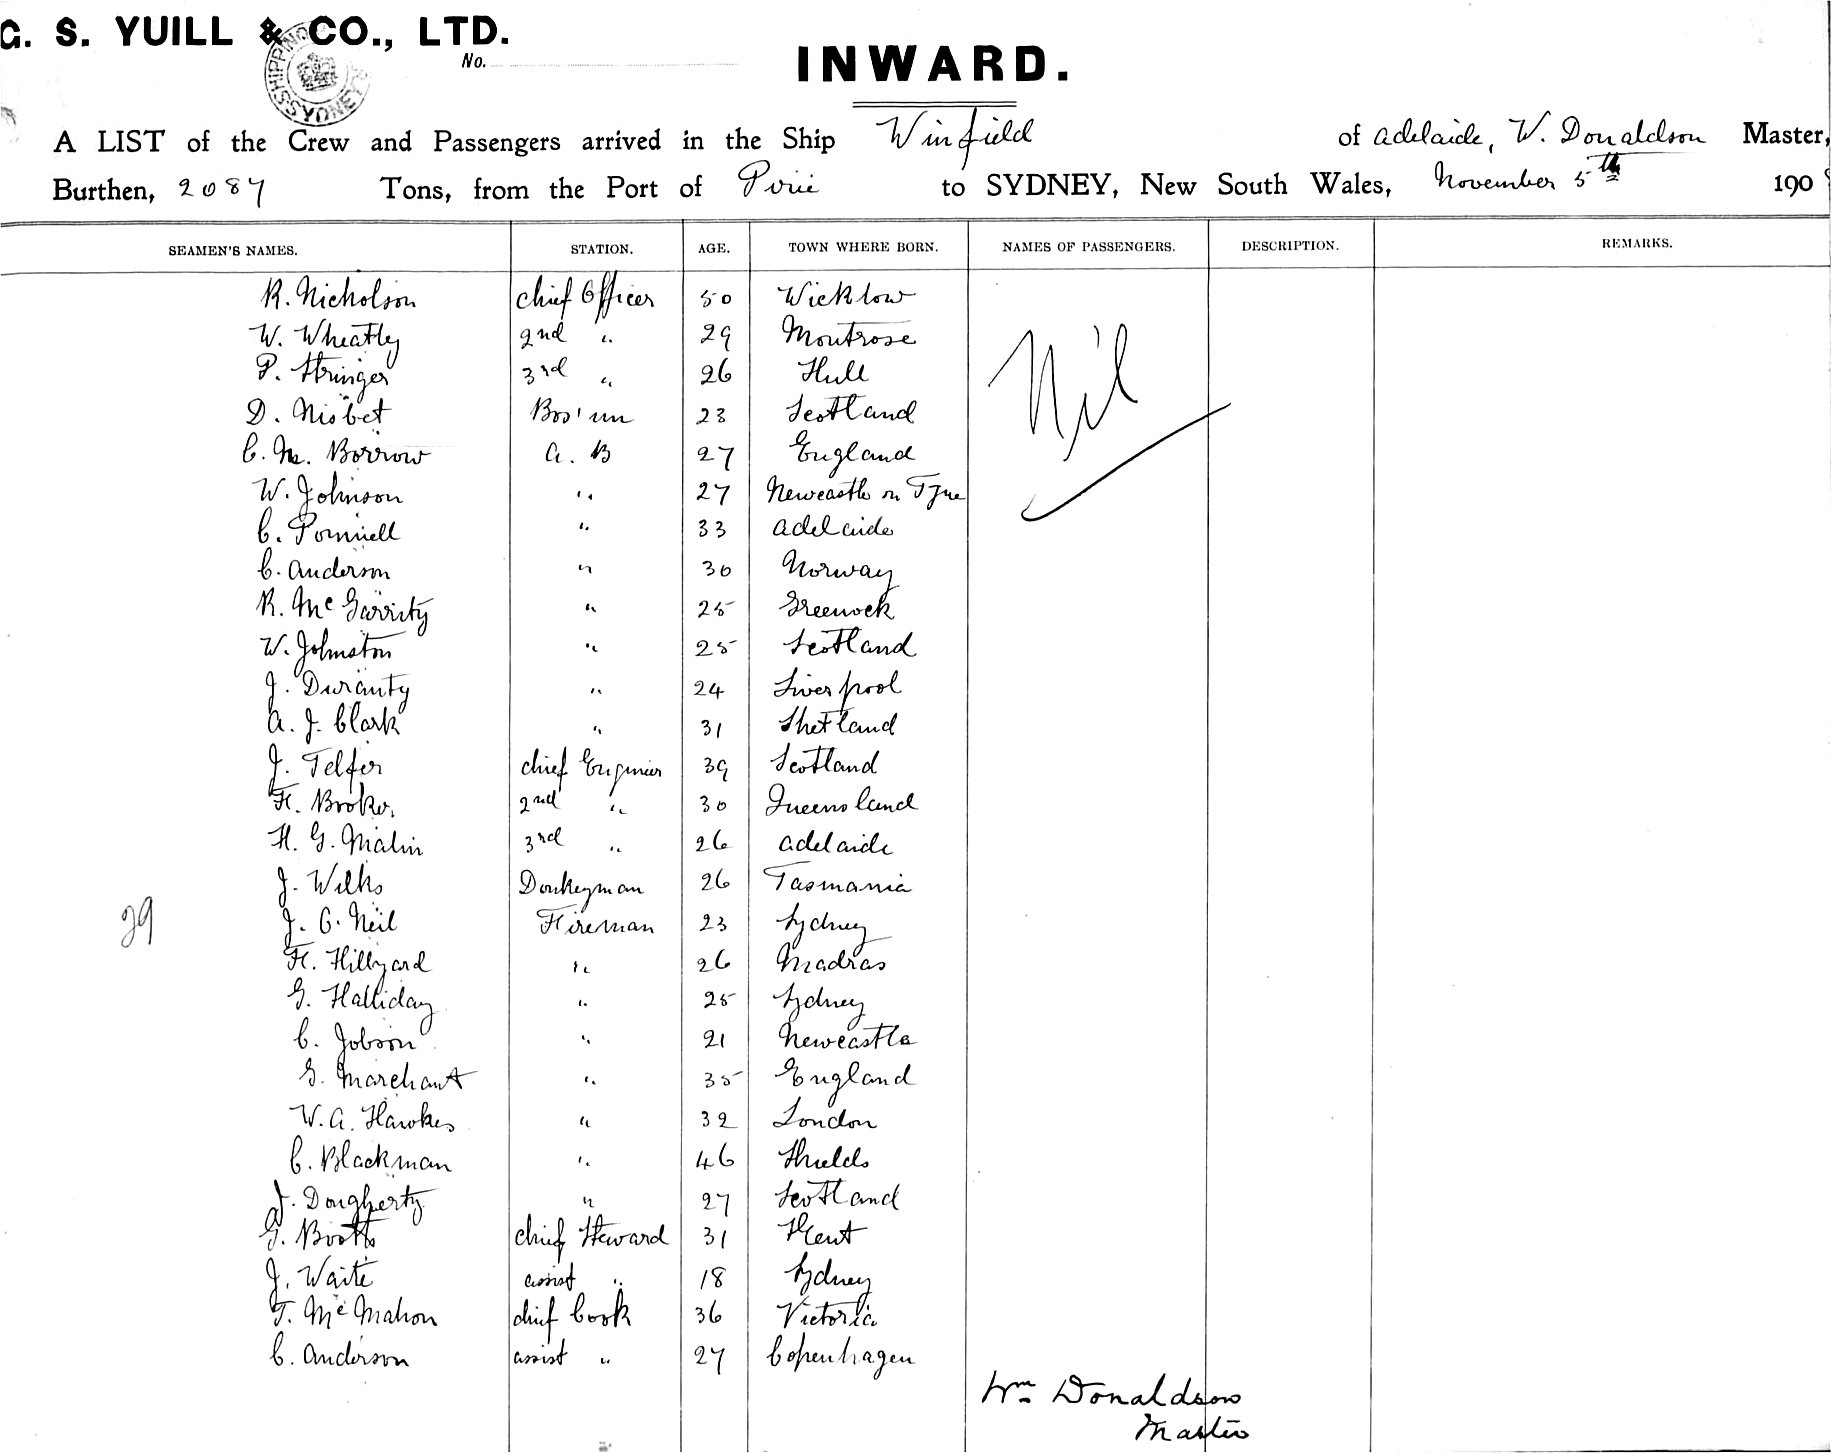 G. S. YUILL & CO., LTD.
No.
SHIPPING SYDNEY
INWARD.
A LIST of the Crew and Passengers arrived in the Ship Winfield of Adelaide, W. Donaldson Master,
Burthen, 2087 Tons, from the Port of Pirie to SYDNEY, New South Wales, November 5th 190
SEAMEN'S NAMES. STATION. AGE. TOWN WHERE BORN. NAMES OF PASSENGERS. DESCRIPTION. REMARKS.
R. Nicholson chief Officer 50 Wicklow
W. Wheatley 2nd " 29 Montrose
P. Stringer 3rd " 26 Hull
Nil
D. Nisbet Bos'un 23 Scotland
C. M. Borrow A. B 27 England
W. Johnson " 27 Newcastle on Tyne
C. " 33 Adelaide
C. Anderson " 30 Norway
R. McGarrity " 25 Greenock
W. Johnston " 25 Scotland
J. Duranty " 24 Liverpool
A. J. Clark " 31 Shetland
J. Telfer chief Engineer 39 Scotland
H. Broker 2nd " 30 Queensland
H. G. Malin 3rd " 26 Adelaide
J. Wilks Donkeyman 26 Tasmania
29
J. C. Neil Fireman 23 Sydney
H. Hillyard " 26 Madras
G. Halliday " 25 Sydney
C. Jobson " 21 Newcastle
G. Marchant " 35 England
W. A. Hawkes " 32 London
C. Blackman " 46 Shields
J. Dougherty " 27 Scotland
G. Booth chief Steward 31 Kent
J. Waite assist " 18 Sydney
T. McMahon chief Cook 36 Victoria
C. Anderson assist " 27 Copenhagen
Wm Donaldson
Master